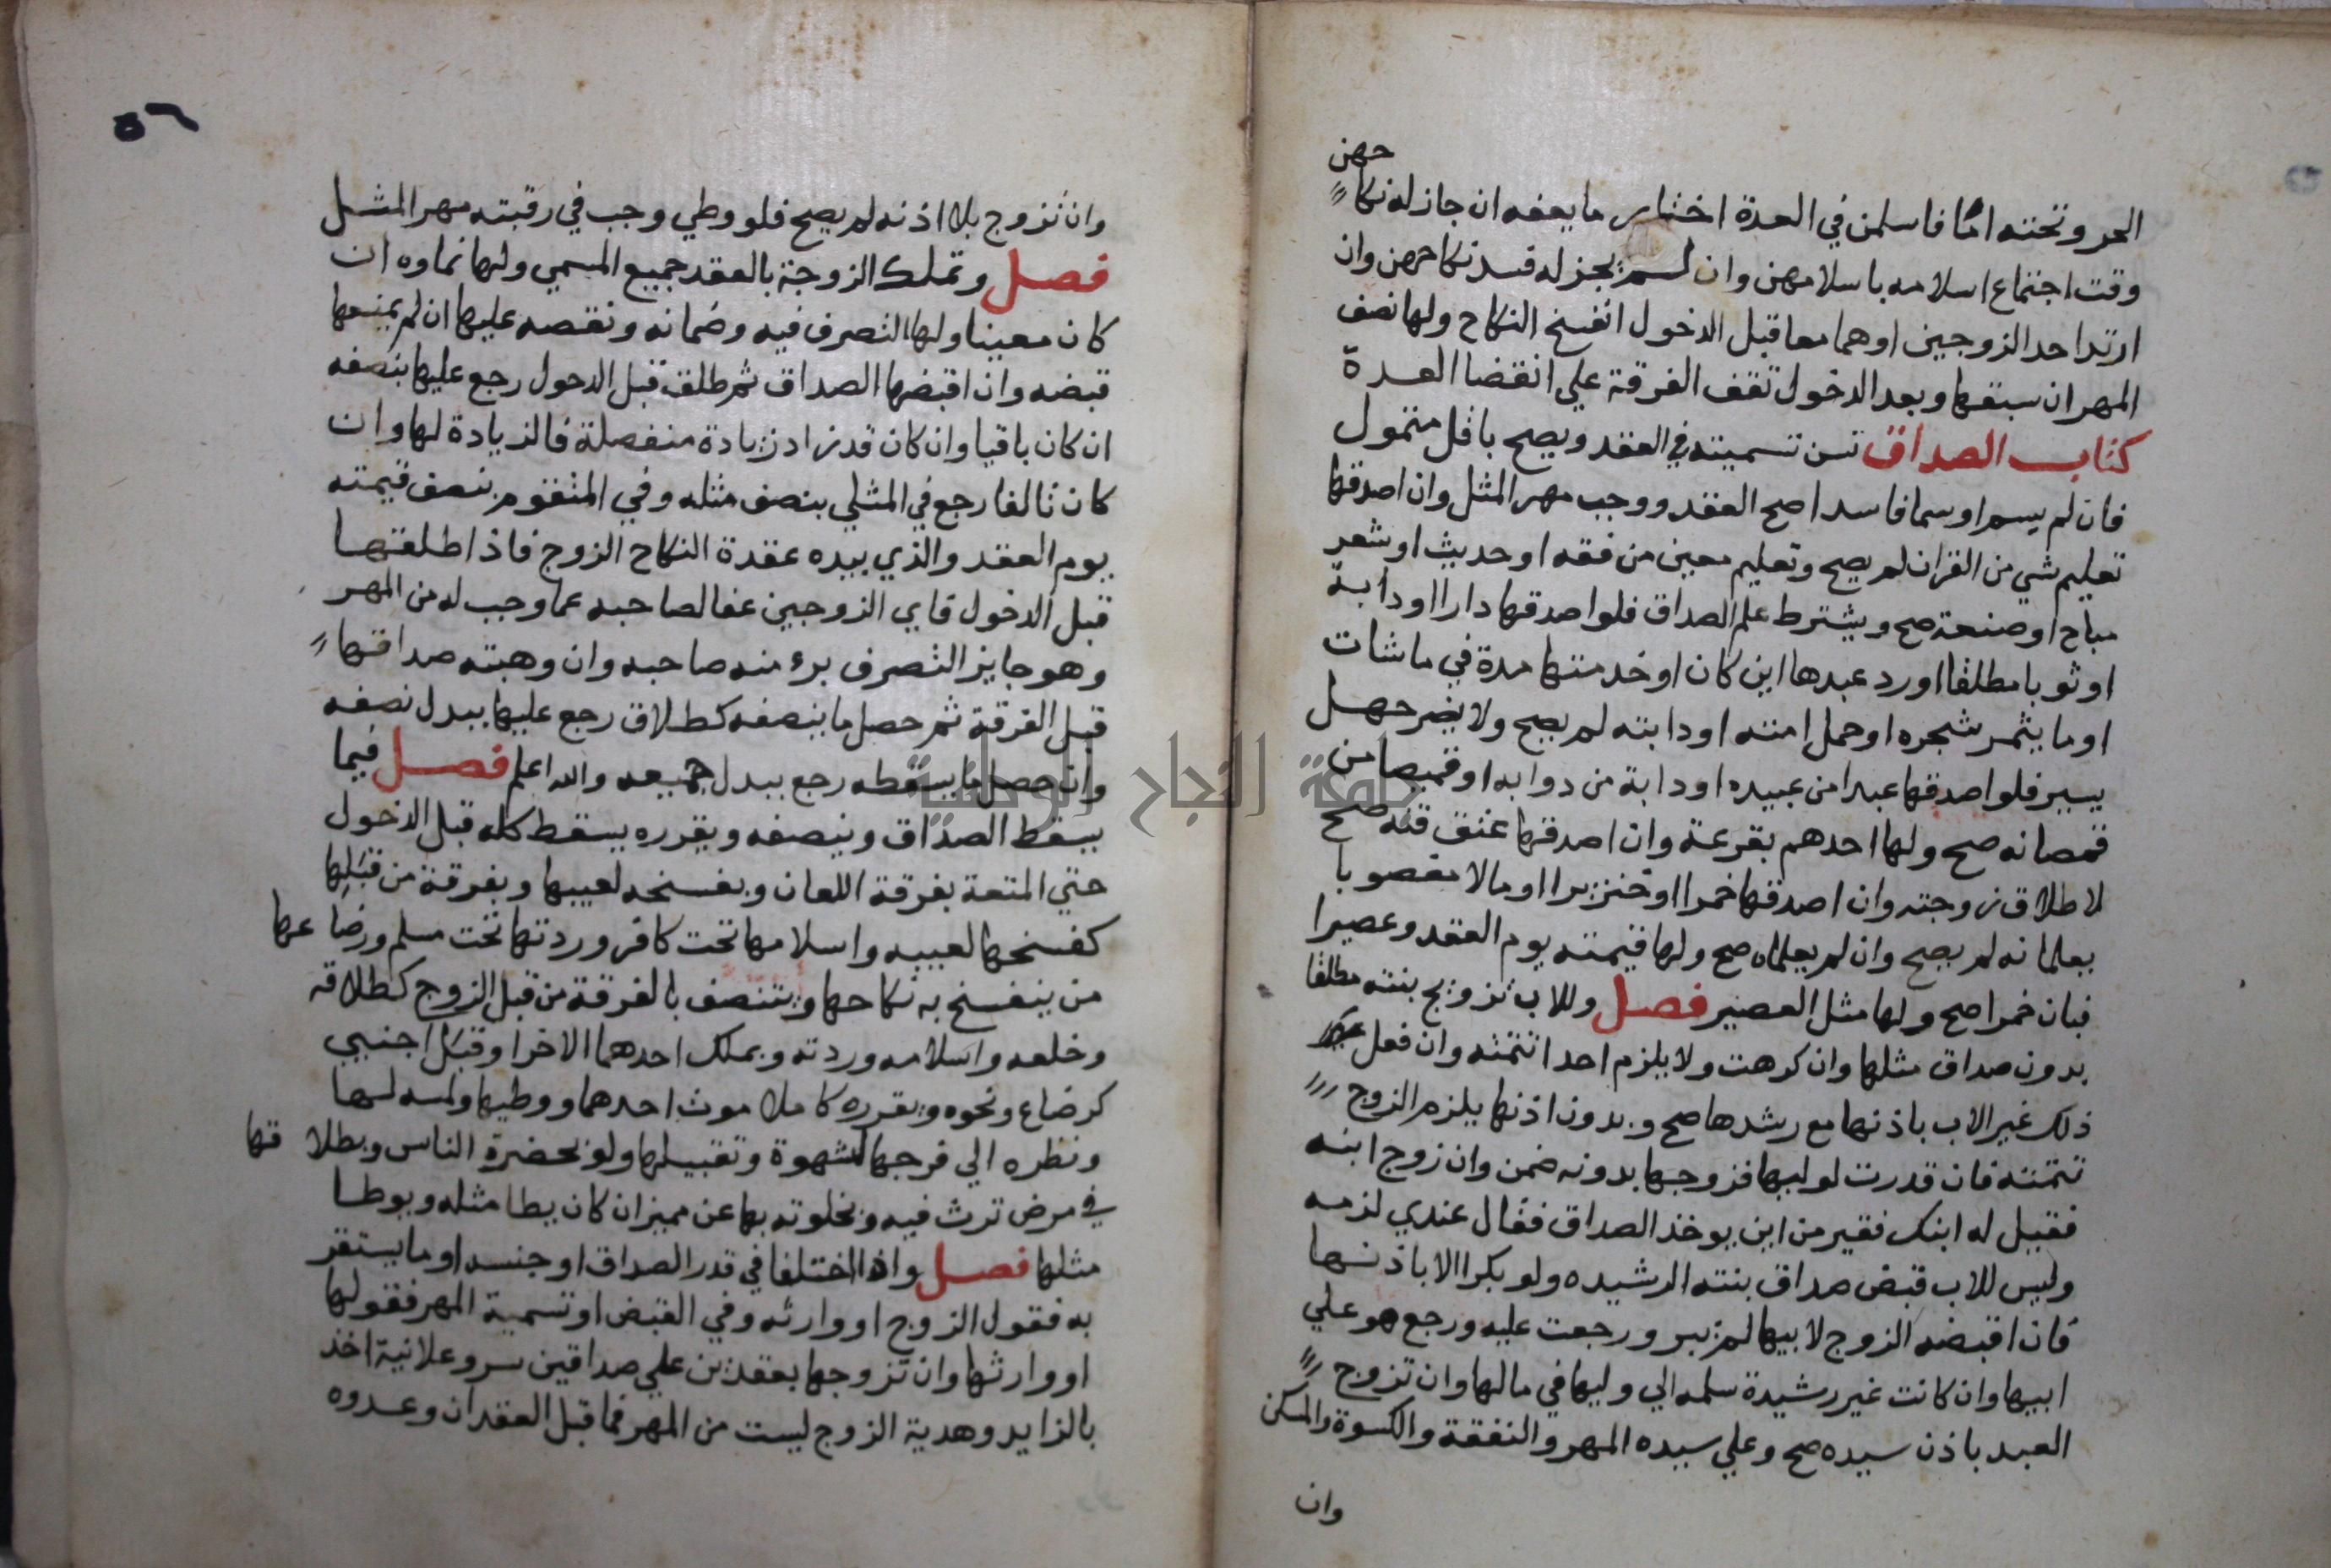 حهن
الحر وتحته اما فاسلمن في العدة اختار ما يعفه ان جاز له نكا
وقت اجتماع اسلامه باسلامهن وان لم يجز له فسد نكاحهن وان
ارتد احد الزوجين او هما معا قبل الدخول انفسخ النكاح ولها نصف
المهر ان سبقها وبعد الدخول تقف الفرقة علي انقضا العدة
كتاب الصداق تسن تسميته في العقد ويصح باقل متمول
فان لم يسم او سما فاسدا صح العقد ووجب مهر المثل وان اصدقها
تعليم شي من القران لم يصح وتعليم معين من فقه او حديث او شعر
مباح او صنعة صح ويشترط علم الصداق فلو اصدقها دارا او دابة
او ثوبا مطلقا او رد عبدها اين كان او خدمتها مدة في ما شات
او ما يثمر شجره او حمل امته او دابته لم يصح ولا يضر جهل
يسير فلو اصدقها عبدا من عبيده او دابة من دوابه او قميصا من
قمصانه صح ولها احدهم بقرعة وان اصدقها عتق قنه صح
لا طلاق زوجته وان اصدقها خمرا او خنزيرا او مالا مغصوبا
يعلمانه لم يصح وان لم يعلماه صح ولها قيمته يوم العقد وعصيرا
فبان خمرا صح ولها مثل العصير فصل وللاب تزويج بنته مطلقا
بدون صداق مثلها وان كرهت ولا يلزم احدا تتمته وان فعل
ذلك غير الاب باذنها مع رشدها صح وبدون اذنها يلزم الزوج
تتمته فان قدرت لوليها فزوجها بدونه ضمن وان زوج ابنه
فقيل له ابنك فقير من اين يوخذ الصداق فقال عندي لزمه
وليس للاب قبض صداق بنته الرشيده ولو بكرا الا باذنها
فان اقبضه الزوج لابيها لم يبر ورجعت عليه ورجع هو علي
ابيها وان كانت غير رشيدة سلمه الي وليها في مالها وان تزوج
العبد باذن سيده صح وعلي سيده المهر والنفقة والكسوة والمسكن
وان
٥٦
وان تزوج بلا اذنه لم يصح فلو وطي وجب في رقبته مهر المثل
فصل وتملك الزوجة بالعقد جميع المسمي ولها نماوه ان
كان معينا ولها التصرف فيه وضمانه ونقصه عليها ان لم يمنعها
قبضه وان اقبضها الصداق ثم طلق قبل الدخول رجع عليها بنصفه
ان كان باقيا وان كان قد زاد زيادة منفصلة فالزيادة لها وان
كان تالفا رجع في المثلي بنصف مثله وفي المتقوم بنصف قيمته
يوم العقد والذي بيده عقدة النكاح الزوج فاذا طلقها
قبل الدخول فاي الزوجين عفا لصاحبه عما وجب له من المهر
وهو جايز التصرف برء منه صاحبه وان وهبته صداقها
قبل الفرقة ثم حصل ما ينصفه كطلاق رجع عليها ببدل نصفه
وان حصل ما يسقطه رجع ببدل جميعه والله اعلم فصل فيما
يسقط الصداق وينصفه ويقرره يسقط كله قبل الدخول
حتي المتعة بفرقة اللعان وبفسخه لعيبها وبفرقة من قبلها
كفسخها لعيبه واسلامها تحت كافر وردتها تحت مسلم ورضاعها
من ينفسخ به نكاحها ويتنصف بالفرقة من قبل الزوج كطلاقه
وخلعه واسلامه وردته وبملك احدهما الاخر او قبل اجنبي
كرضاع ونحوه ويقرره كاملا موت احدهما ووطيها ولمسه لها
ونظره الي فرجها لشهوة وتقبيلها ولو بحضرة الناس وبطلاقها
في مرض ترث فيه وبخلوته بها عن مميز ان كان يطا مثله ويوطا
مثلها فصل واذا اختلفا في قدر الصداق او جنسه او ما يستقر
به فقول الزوج او وارثه وفي القبض او تسمية المهر فقولها
او وارثها وان تزوجها بعقدين علي صداقين سر وعلانية اخذ
بالزايد وهدية الزوج ليست من المهر فما قبل العقد ان وعدوه
جامعة النجاح الوطنية